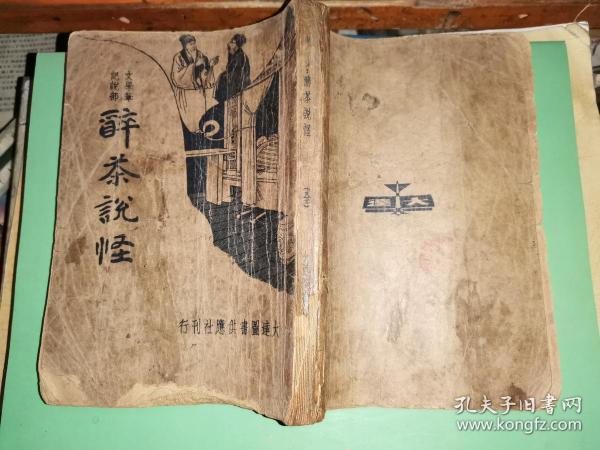 文學筆
記說部
醉茶說怪
大達圖書供應社刊行
醉茶說怪
大達
孔夫子旧书网
www.kongfz.com